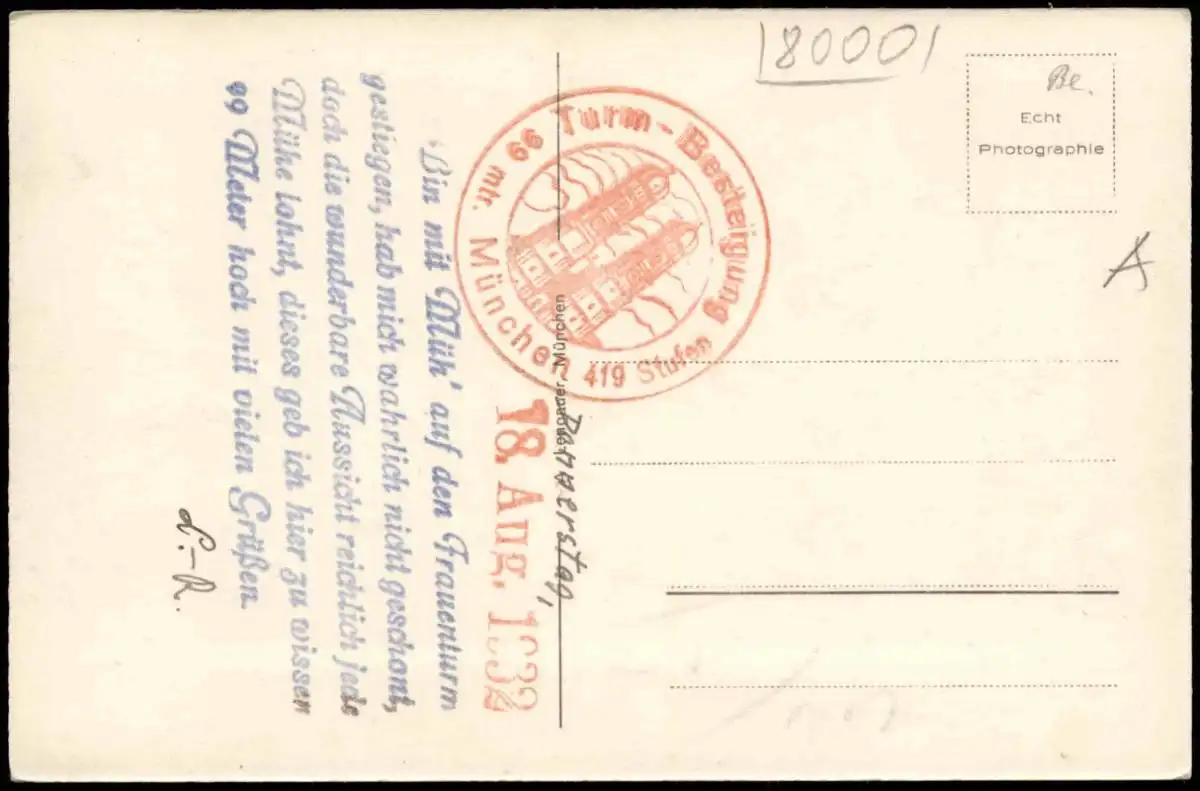 80001
Be.
Echt
Photographie
A
Turm-Besteigung
99 mtr.
München 419 Stufen
München
Donnerstag,
18. Aug. 1932
Bin mit Müh' auf den Frauenturm
gestiegen, hab mich wahrlich nicht geschont,
doch die wunderbare Aussicht reichlich jede
Mühe lohnt, dieses geb ich hier zu wissen
99 Meter hoch mit vielen Grüßen.
L.-R.